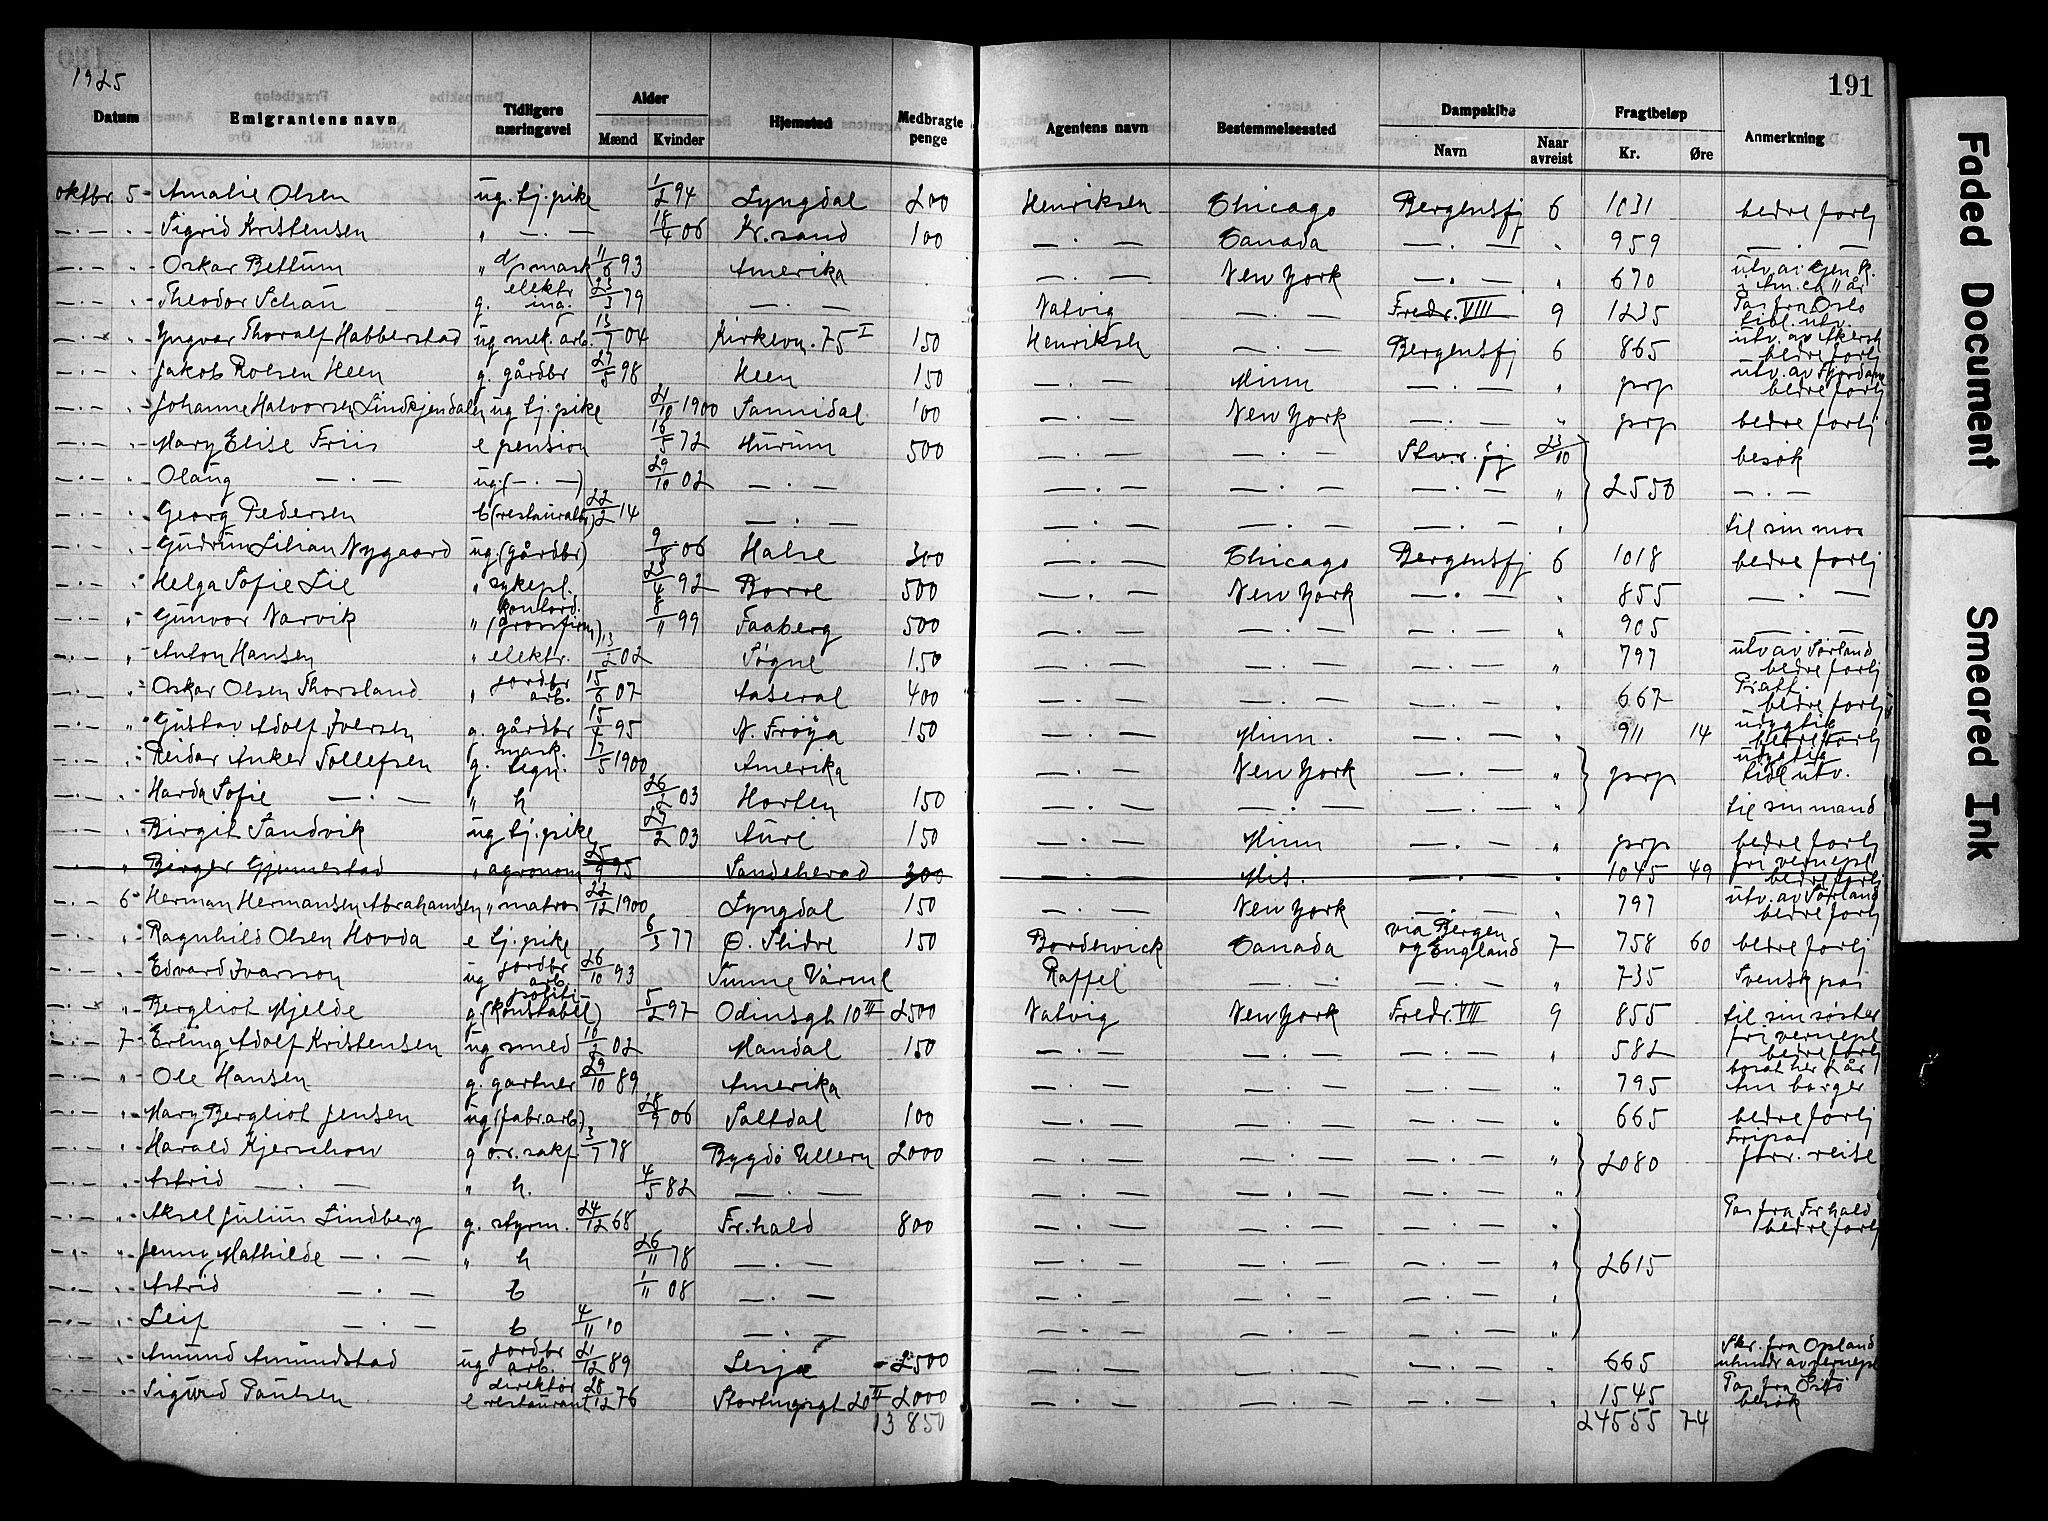 191
1925
Datum Emigrantens navn Tidligere næringsvei Alder Mænd Kvinder Hjemsted Medbragte penge Agentens navn Bestemmelsessted Dampskibe Navn Naar avreist Fragtbeløp Kr. Øre Anmerkning
oktbr. 5 Amalie Olsen ug. tj. pike 1/2 94 Lyngdal 200 Henriksen Chicago Bergensfj 6 1031 bedre forhj
—.— " Sigrid Kristensen " —.— 18/4 06 Kr.sand 100 —.— Canada —.— " 959 —.—
—.— " Oskar Bettum " d/smask 11/6 93 Amerika —.— New York —.— " 670 utv. av
—.— " Theodor Schau g. elektr ing. 23/3 79 —.— Natvig —.— Fredr. VIII 9 1235 Pas fra Oslo
—.— " Yngvar Thoralf Habberstad ug mek. arb. 13/7 04 Kirkevn. 75 I 150 Henriksen —.— Bergensfj 6 865 utv. av Akersh bedre forhj
—.— " Jakob Rolsen Heen g. gårdbr 27/5 98 Heen 150 —.— Minn —.— " prp utv. av Fjordane bedre forhj
—.— " Johanne Halvorsen Lindkjendalen ug tj. pike 21/10 1900 Sannidal 100 —.— New York —.— " prp bedre forhj
—.— " Mary Elise Friis e pension 16/5 72 Hurum 500 —.— —.— Stvr. fj 23/10 besøk
—.— " Olaug —.— ug. (—.—) 29/10 02 —.— —.— —.— —.— " 2550 —.—
—.— " Georg Pedersen b (restauratør) 22/2 14 —.— —.— —.— —.— " til sin mor
—.— " Gudrun Lilian Nygaard ug. (gårdbr) 9/8 06 Halse 300 —.— Chicago Bergensfj 6 1018 bedre forhj
—.— " Helga Sofie Lie " sykepl. 23/4 92 Borre 500 —.— New York —.— " 855 —.—
—.— " Gunvor Narvik " kontord. (grosfirm) 8/11 99 Faaberg 500 —.— —.— —.— " 905 —.—
—.— " Anton Hansen " elektr. 13/2 02 Søgne 150 —.— —.— —.— " 797 utv av Sørland bedre forhj
—.— " Oskar Olsen Thorsland " jordbr arb. 15/6 07 Aaseral 400 —.— —.— —.— " 667 bedre forhj
—.— " Gustav Adolf Iversen g. gårdbr 15/4 95 N. Frøya 150 —.— Minn. —.— " 911 14 udygtig bedre forhj
—.— " Reidar Anker Tollefsen g. mask. tegn. 17/5 1900 Amerika —.— New York —.— " prp udygtig tidl utv.
—.— " Harda Sofie —.— " h 26/2 03 Horten 150 —.— —.— —.— " til sin mand
—.— " Birgit Sandvik ug tj. pike 27/2 03 Aure 150 —.— Minn —.— " prp bedre forhj
—.— " Birger Gjennestad " agronom 25/9 95 Sandeherad 300 —.— Mis. —.— " 1045 49 fri vernepl bedre forhj
—.— 6 Herman Hermansen Abrahamsen " matros 22/12 1900 Lyngdal 150 —.— New York —.— " 797 utv. av Sørland bedre forhj
—.— " Ragnhild Olsen Hovda e tj. pike 6/3 77 Ø. Slidre 150 Bordewick Canada via Bergen og England 7 758 60 bedre forhj
—.— " Edvard Ivarsson ug jordbr arb. 26/10 93 Sunne Värml Raffel —.— —.— " 735 Svensk pas
—.— " Bergliot Mjelde g (politi-konstabel) 5/2 97 Odinsgt 10 III 2500 Natvig New York Fredr. VIII 9 855 til sin søster
—.— 7 Erling Adolf Kristensen ug smed 10/2 02 Mandal 150 —.— —.— —.— " 582 fri vernepl bedre forhj
—.— " Ole Hansen g. gartner 29/10 89 Amerika —.— —.— —.— " 795 Am borger
—.— " Mary Bergliot Jensen ug (fabr.arb) 28/9 06 Saltdal 100 —.— —.— —.— " 665 bedre forhj
—.— " Harald Kjerschow g o.r.sakf. 3/7 78 Bygdö Ullern 2000 —.— —.— —.— " 2080 Fripas forr. reise
—.— " Astrid —.— " h. 4/5 82 —.— —.— —.— —.— "
—.— " Aksel Julius Lindberg g. styrm. 24/12 68 Fr.hald 800 —.— —.— —.— " Pas fra Fr hald bedre forhj
—.— " Jenny Mathilde —.— " h 26/11 78 —.— —.— —.— —.— " 2615
—.— " Astrid —.— b 1/11 08 —.— —.— —.— —.— "
—.— " Leif —.— b 4/11 10 —.— —.— —.— —.— "
—.— " Amund Amundstad ug jordbr arb. 21/12 89 Lesja 2500 —.— —.— —.— " 665 Skr. fra Opland
—.— " Sigurd Paulsen e direktør restaurant 28/12 76 Stortingsgt 20 II 2000 —.— —.— —.— " 1545 Pas fra Oslo besøk
13 850 24555 74
Faded Document
Smeared Ink